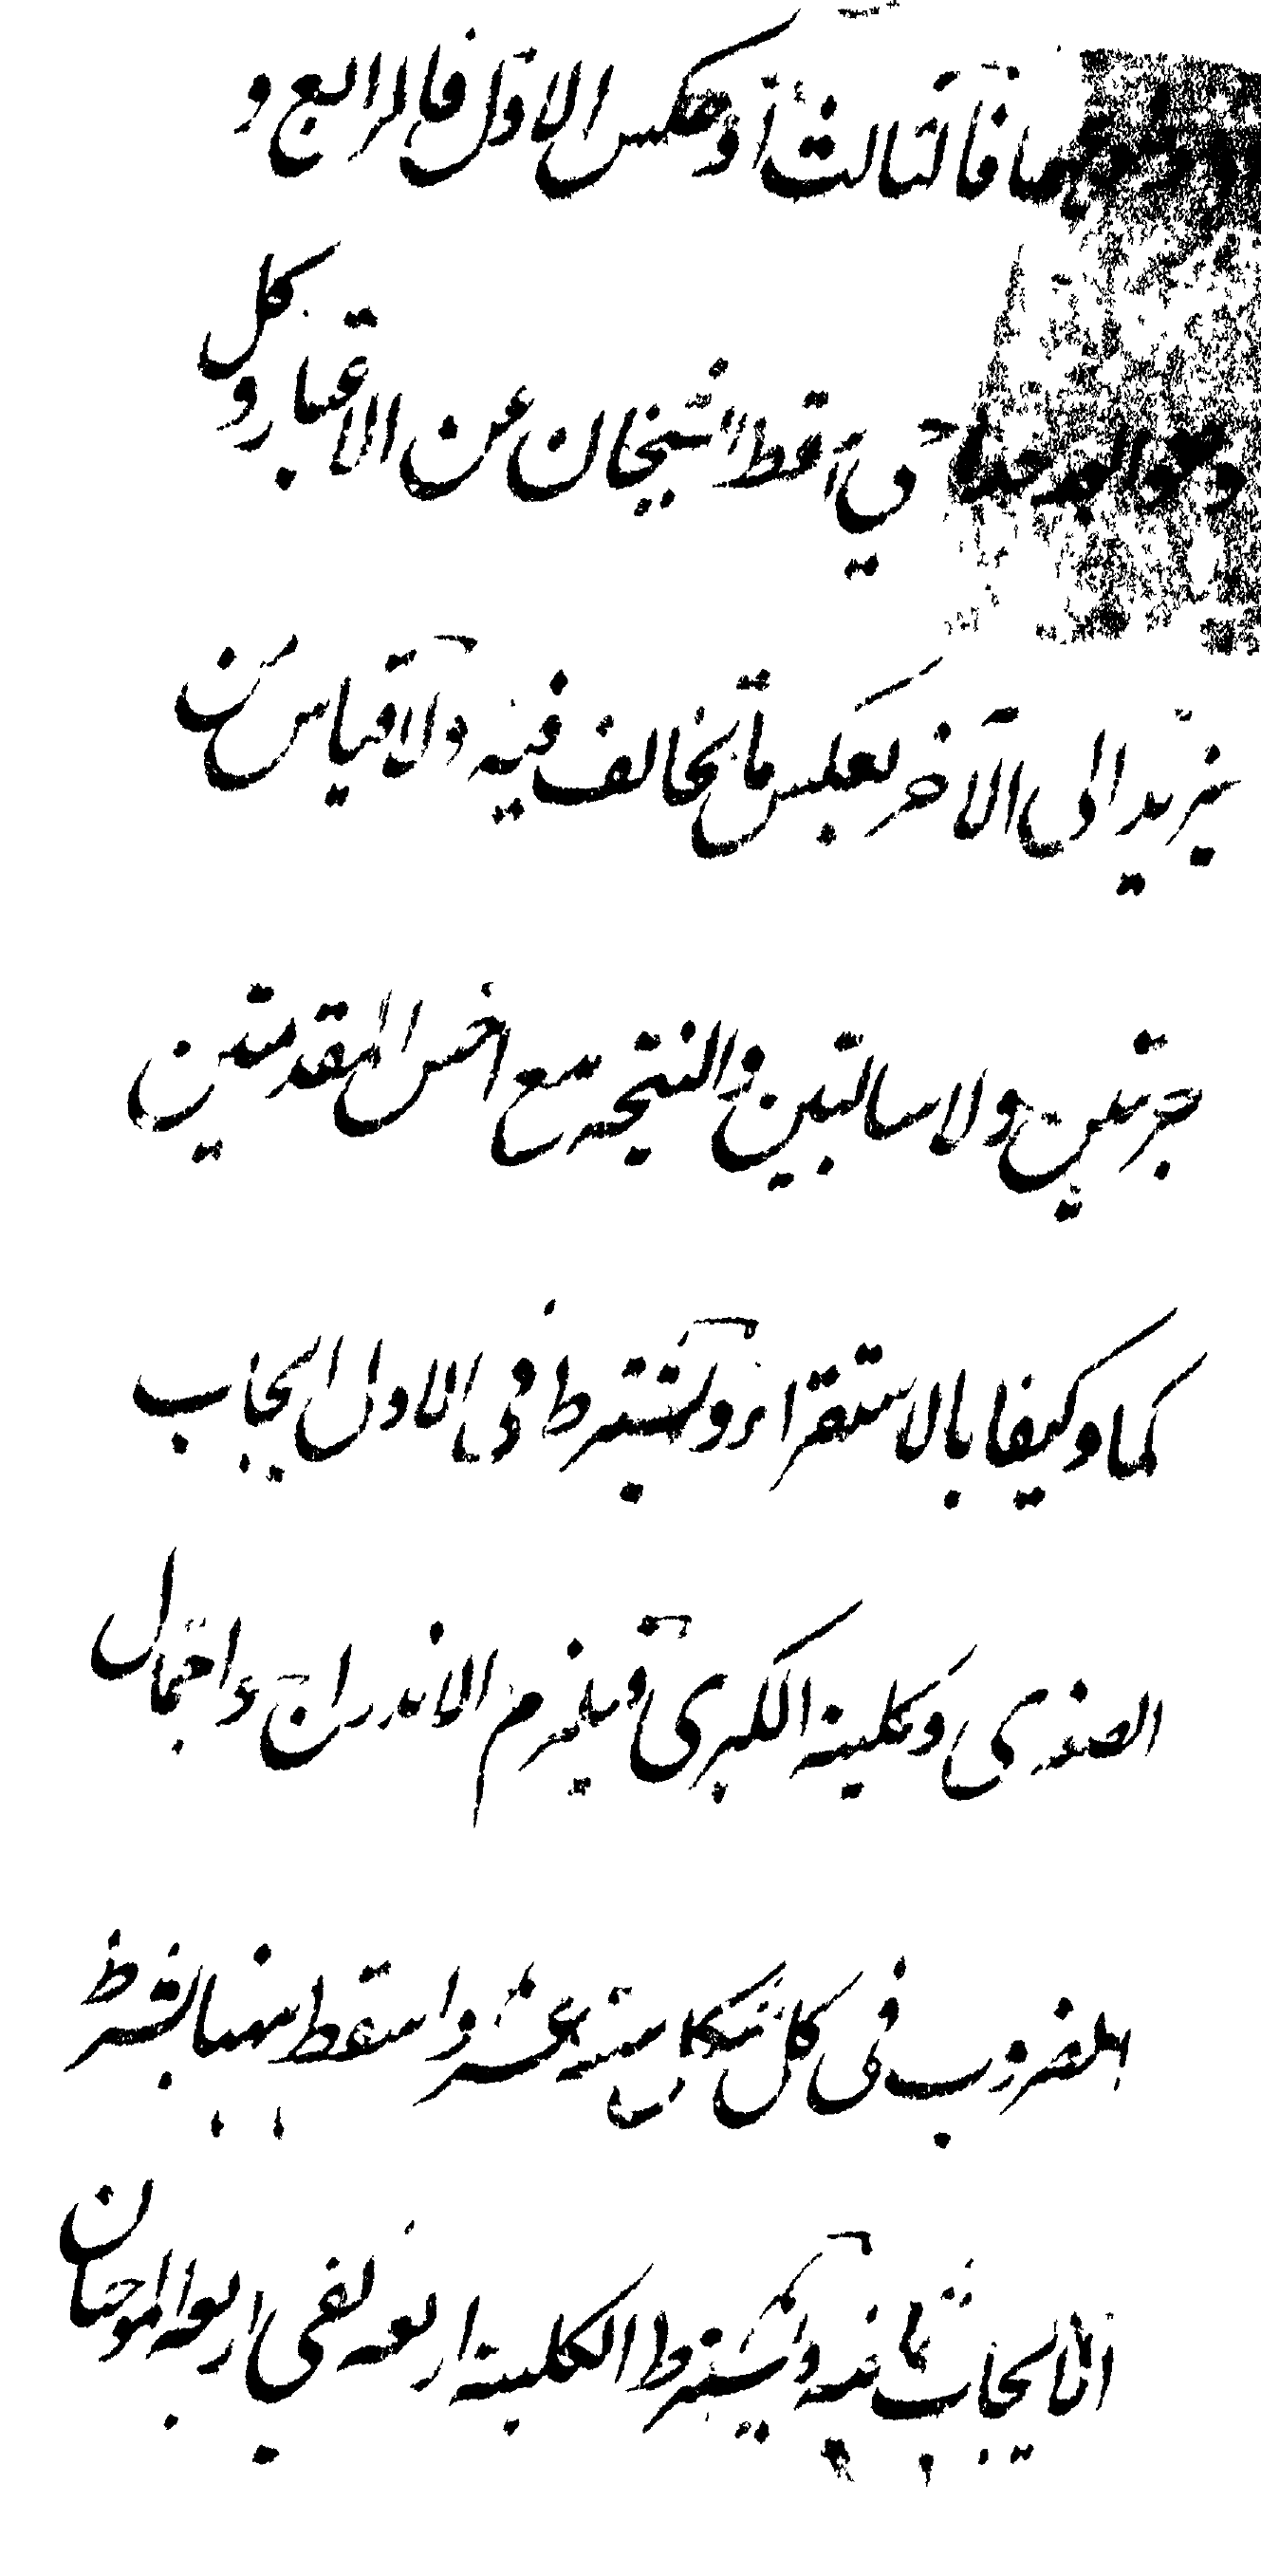 فالثالث أو عكس الاول فالرابع و
وهو ابعد جدا حتى اسقط الشيخان عن الاعتبار وكل
يرتد الى الآخر بعكس ما تخالف فيه ولا قياس من
جزئيتين ولا سالبتين والنتيجه تتبع اخس المقدمتين
كما وكيفا بالاستقراء ويشترط في الاول ايجاب
الصغرى وكلية الكبرى فيلزم الاندراج واحتمال
الضروب في كل شكل ستة عشر واسقط ههنا بشرط
الايجاب ثمانية وبشرط الكلية اربعه بقي اربعه الموجبتان